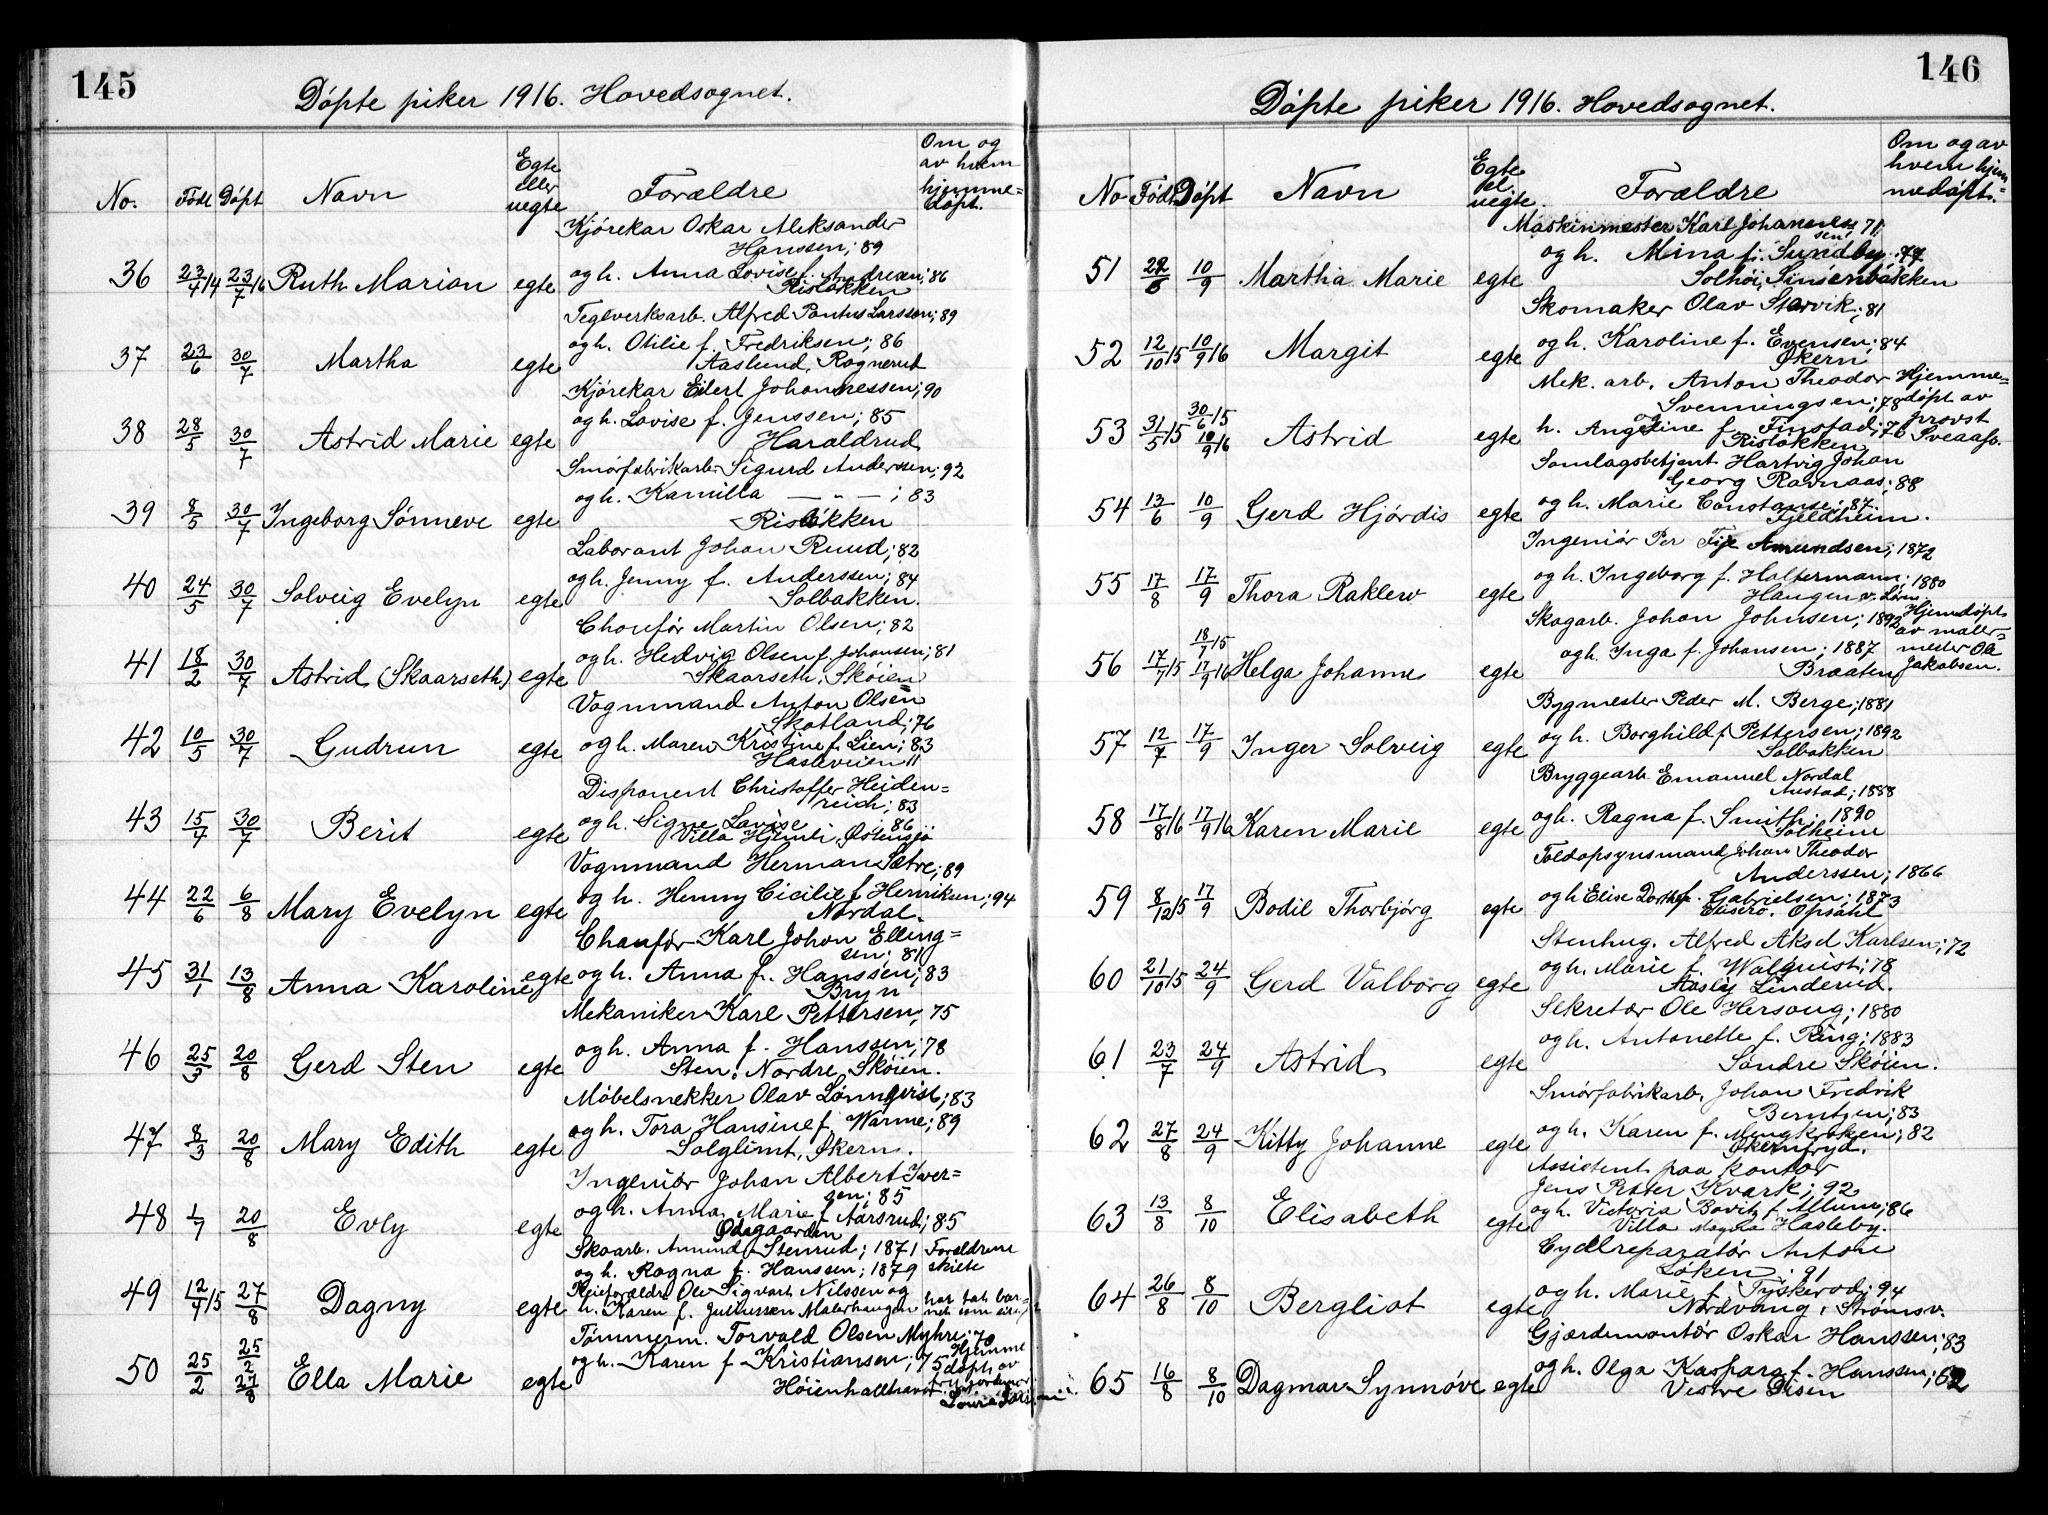 145
Døpte piker 1916. Hovedsognet.
No. Født Døpt Navn Egte eller uegte Forældre Om og av hvem hjemme=døpt.
Kjørekar Oskar Aleksander
Hanssen; 89
36 23/4 14 23/7 16 Ruth Marion egte og h. Anna Lovise f. Andresen; 86
Risløkken
Teglverksarb. Alfred Pontus Larsson; 89
og h. Otilie f. Fredriksen; 86
37 23/6 30/7 Martha egte Aaslund, Rognerud
Kjørekar Eilert Johannessen; 90
og h. Lovise f. Jenssen; 85
38 28/5 30/7 Astrid Marie egte Haraldrud
Smørfabrikarb. Sigurd Anderssen; 92
og h. Kamilla — " — ; 83
39 8/5 30/7 Ingeborg Sønneve egte Risløkken
Laborant Johan Ruud; 82
og h. Jenny f. Anderssen; 84
40 24/5 30/7 Solveig Evelyn egte Solbakken.
Chauför Martin Olsen; 82
og h. Hedvig Olsen f. Johansen; 81
41 18/2 30/7 Astrid (Skaarseth) egte Skaarseth, Skøien
Vognmand Anton Olsen
Skotland; 76
42 10/5 30/7 Gudrun egte og h. Maren Kristine f. Lien; 83
Hasleveien 11
Disponent Christoffer Heiden=
reich; 83
43 15/4 30/7 Berit egte og h. Signe Lovise 86
Villa Hjemli, Østensjø
Vognmand Herman Sætre; 89
44 22/6 6/8 Mary Evelyn egte og h. Henny Cicilie f. Henriksen; 94
Nordal.
Chauför Karl Johan Elling=
sen; 81
45 31/1 13/8 Anna Karoline egte og h. Anna f. Hanssen; 83
Bryn
Mekaniker Karl Pettersen; 75
og h. Anna f. Hanssen; 78
46 25/3 20/8 Gerd Sten egte Sten, Nordre Skøien.
Møbelsnekker Olav Lønnqvist; 83
og h. Tora Hansine f. Warme; 89
47 8/3 20/8 Mary Edith egte Solglimt, Økern.
Ingeniør Johan Albert Iver=
sen; 85
48 1/7 20/8 Evly egte og h. Anna Marie f. Aarsrud; 85
Skoarb. Amund Stenrud; 1871 Forældrene
og h. Ragna f. Hanssen; 1879 skilte
49 12/4 15 27/8 Dagny egte Pleieforældre Ole Sigvart Nilssen og
h. Karen f. Malerhaugen har tat bar=
net som
Tømmerm. Torvald Olsen Myhre; 70
50 25/2 25/2 27/8 Ella Marie egte og h. Karen f. Kristiansen; 75 Hjemme
døpt av
Høienhallhavn. jordmor
146
Døpte piker 1916. Hovedsognet.
No Født Døpt Navn Egte el. uegte Forældre Om og av hvem hjem medøpt.
Maskinmester Karl Johannes
sen; 71
og h. Mina f. Sundby; 77
51 22/6 10/9 Martha Marie egte Solhøi, Sinsenbakken
Skomaker Olav Storvik; 81
og h. Karoline f. Evensen; 84
52 12/10 15 10/9 16 Margit egte Økern
Mek. arb. Anton Theodor Hjemme=
Svenningsen; 78 døpt av
og provst
53 31/5 15 30/6 15 10/9 16 Astrid egte h. Angeline f. Finstad; 76 Sveaas.
Risløkken
Samlagsbetjent Hartvig Johan
Georg Ravnaas; 88
54 13/6 10/9 Gerd Hjördis egte og h. Marie Constanse; 87.
Fjeldheim.
Ingeniör Per Amundsen; 1872
og h. Ingeborg f. Holtermann; 1880
55 17/8 17/9 Thora Raklew egte Haugen v. Løren
Skogarb. Johan Johnsen; 1892 Hjemdøpt
av maler=
56 17/7 15 18/7 15 17/9 16 Helga Johanne egte og h. Inga f. Johansen; 1887 mester Ole
Braaten Jakobsen.
Bygmester Peder M. Berge; 1881
og h. Borghild f. Pettersen; 1892
57 12/7 17/9 Inger Solveig egte Solbakken
Bryggearb Emanuel Nordal
Austad; 1888
58 17/8 16 17/9 16 Karen Marie egte og h. Ragna f. Smith; 1890
Solheim
Toldopsynsmand Johan Theodor
Anderssen; 1866
59 8/12 15 17/9 Bodil Thorbjörg egte og h Elise Dorthe f. Gabrielsen; 1873
Elisero. Opsahl
Stenhug. Alfred Aksel Karlsen; 72
og h. Marie f. Walquist; 78
60 21/10 15 24/9 Gerd Valborg egte Aasly Linderud.
Sekretær Ole Hersoug; 1880
og h. Antonette f. Ring; 1883
61 23/7 24/9 Astrid egte Søndre Skøien.
Smørfabrikarb. Johan Fredrik
Berntzen; 83
62 27/8 24/9 Kitty Johanne egte og h. Karen f. Mengkroken; 82
Økernfryd.
Assistent paa kontor
Jens Petter Kvark; 92
63 13/8 8/10 Elisabeth egte og h. Victoria Bovitz f. Allum; 86
Villa Hasleby.
Cyclreparatør Anton
Løken; 91
64 26/8 8/10 Bergliot egte og h. Marie f. Tyskerod; 94
Nordvang, Strømsv.
Gjærdemontör Oskar Hanssen; 83
65 16/8 8/10 Dagmar Synnøve egte og h. Olga Kaspara f. Hanssen; 82
Vestre Disen